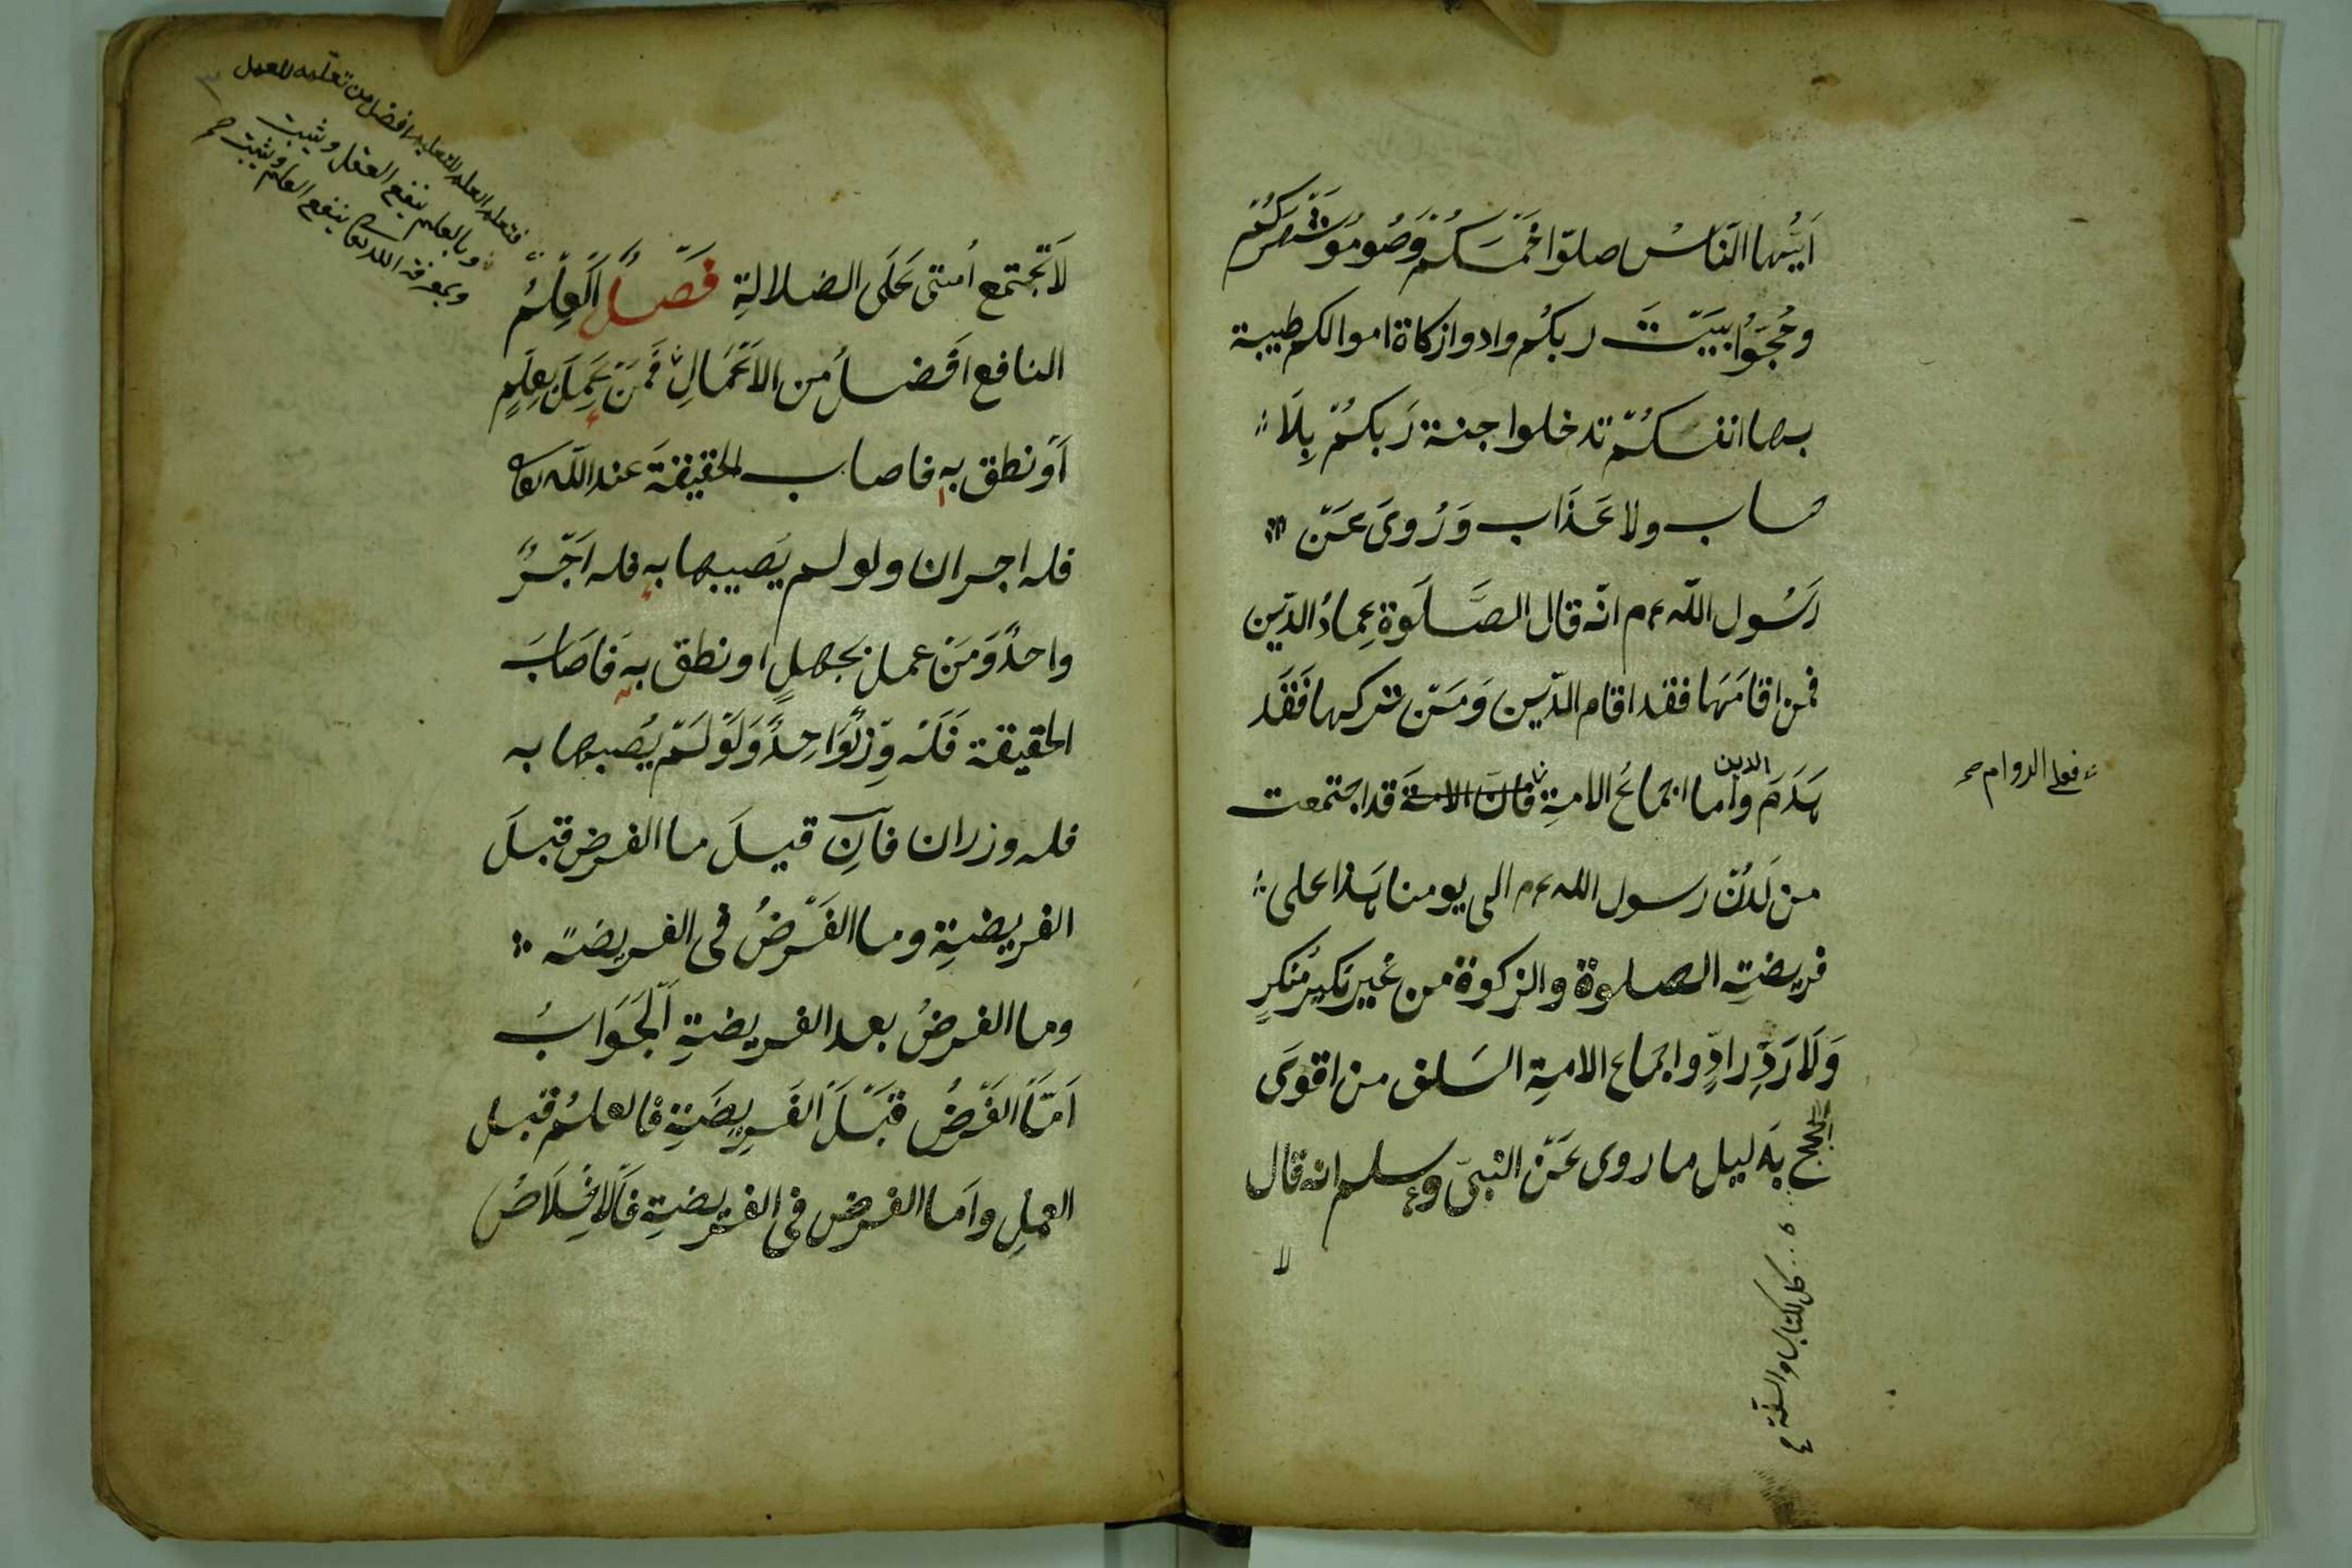 اَيُّهَا النَّاسُ صلوّا خَمْسَكُمْ وَصُومُوا شَهْرَكُمْ
وحُجُّوا بَيْتَ ربكُم وادوا زكاة اموالكم طيبة
بها انفسكُمْ تدخلوا جنة رَبكُمْ بِلَا
حساب ولا عَذَاب وَرُوِىَ عَنْ
رَسُول اللّه عم انّه قال الصَّلَوة عِمادُ الدّين
فمن اقامَهَا فقد اقام الدّين وَمَنْ تركها فَقَد
هَدَمَ الدين وأما اجماعُ الامةِ فانّ الامةَ قد اجتمعت
من لَدُنْ رسول الله عم الى يومنا هَذا على
فريضةِ الصلوة والزكوة من غَير نَكيرِ مُنكرٍ
وَلَا رَدِّ رادٍّ واجماع الامةِ السَلف من اقوىَ
الحجج بدليل ما روى عَنْ النبىّ وعم سلم انه قال
لا
فعلى الدوام صح
كل الكتاب والسنّة
لَا تَجْتمع اُمتى عَلَى الضلالةِ فَصْلٌ اَلْعِلْمُ
النافع اَفْضلُ من الاَعْمَالِ فَمَنْ عَمِلَ بِعِلْمٍ
اَوْ نطق به فاصاب الحقيقةَ عند اللّه تعالى
فله اجران ولو لم يَصيبها به فله اَجْرٌ
واحدٌ وَمَنْ عمل بجهلٍ او نطق به فَاصَابَ
الحقيقة فَلَهُ وِزْرٌ وَاحِدٌ وَلَوْ لَمْ يُصبها به
فله وزران فَاِن قيلَ ما الفرض قبلَ
الفريضةِ وما الفَرْضُ فى الفريضة
وما الفرضُ بعد الفريضةِ اَلْجَوَابُ
اَمَّا الفَرْضُ قَبْلَ الفَرِيضَةِ فالعلمُ قبل
العملِ واَما الفرض فى الفريضةِ فَالْاِخْلَاصُ
فتعلم العلم للتعليم افضل من تعلّمه للعمل
وبالعلم ينفع العقل ويثبت
وبمعرفة اللّه تعالى ينفع العلم ويثبت صح